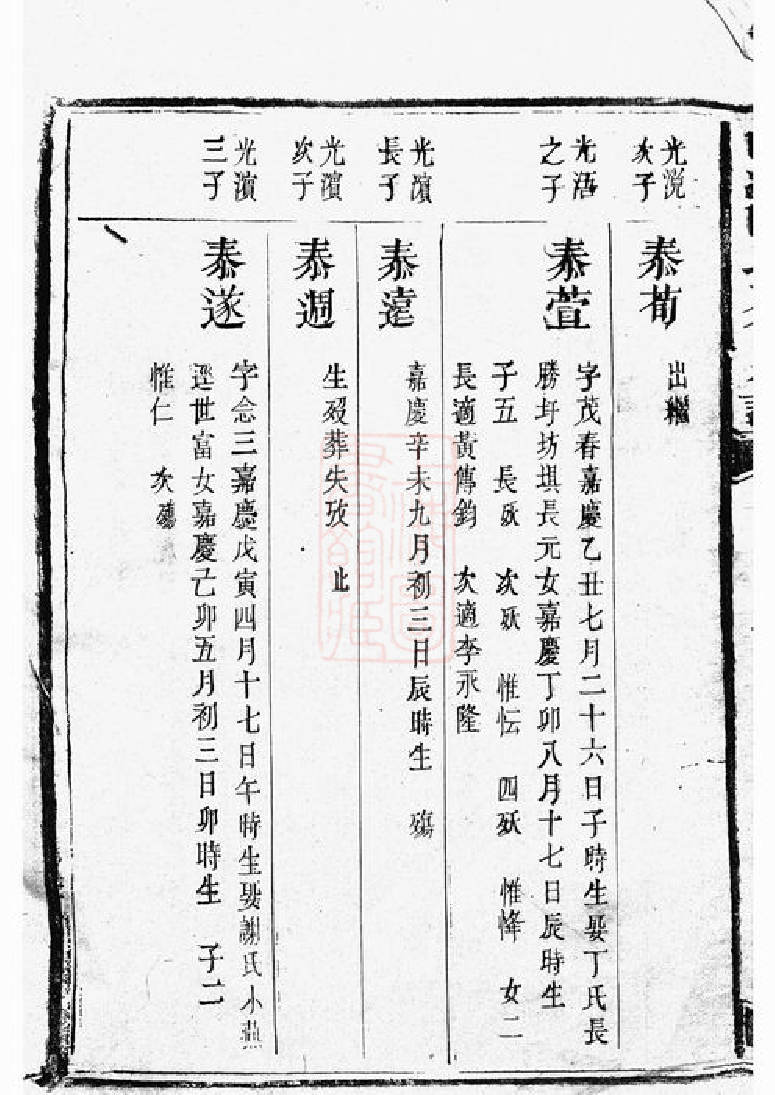 光涚
次子
泰荀
出繼
光浯
之子
泰萱
字茂春嘉慶乙丑七月二十六日子時生娶丁氏長
勝圩坊堪長元女嘉慶丁卯八月十七日辰時生
子五 長殀 次殀 惟忶 四殀 惟懌 女二
長適黃傅鈞 次適李永隆
光濱
長子
泰遠
嘉慶辛未九月初三日辰時生 殤
光濱
次子
泰週
生殁葬失攷 止
光濱
三子
泰遂
字念三嘉慶戊寅四月十七日午時生娶謝氏小燕
逕世富女嘉慶己卯五月初三日卯時生 子二
惟仁 次殤